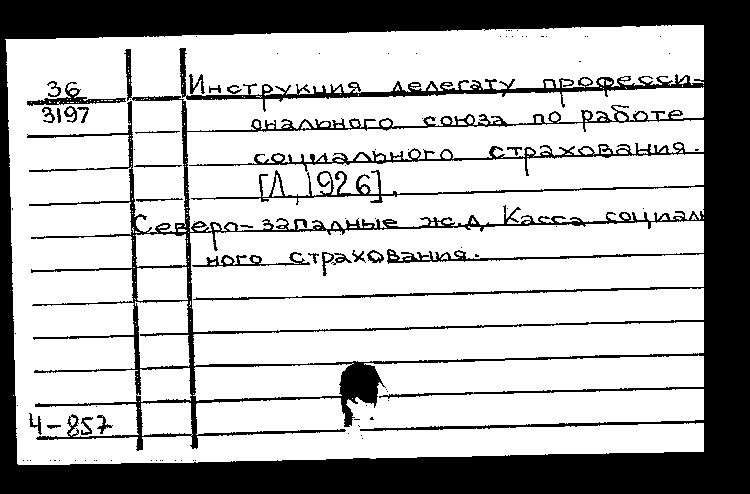 36
3197
Инструкция делегату професси-
онального союза по работе
социального страхования.
[Л, 1926].
Северо-западные ж.д. Касса социаль
ного страхования.
Ч-857